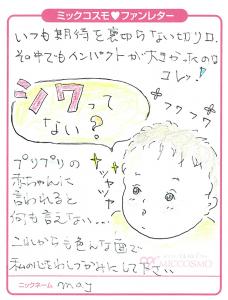 ミックコスモ♥ファンレター
いつも期待を裏切らない切り口。
その中でもインパクトが大きかったのは
コレッ!
シワって
ない?
フワフワ
ツヤツヤ
プリプリの
赤ちゃんに
言われると
何も言えない...
これからも色んな面で
私の心をわしづかみにして下さい
MICCOSMO
ニックネーム may